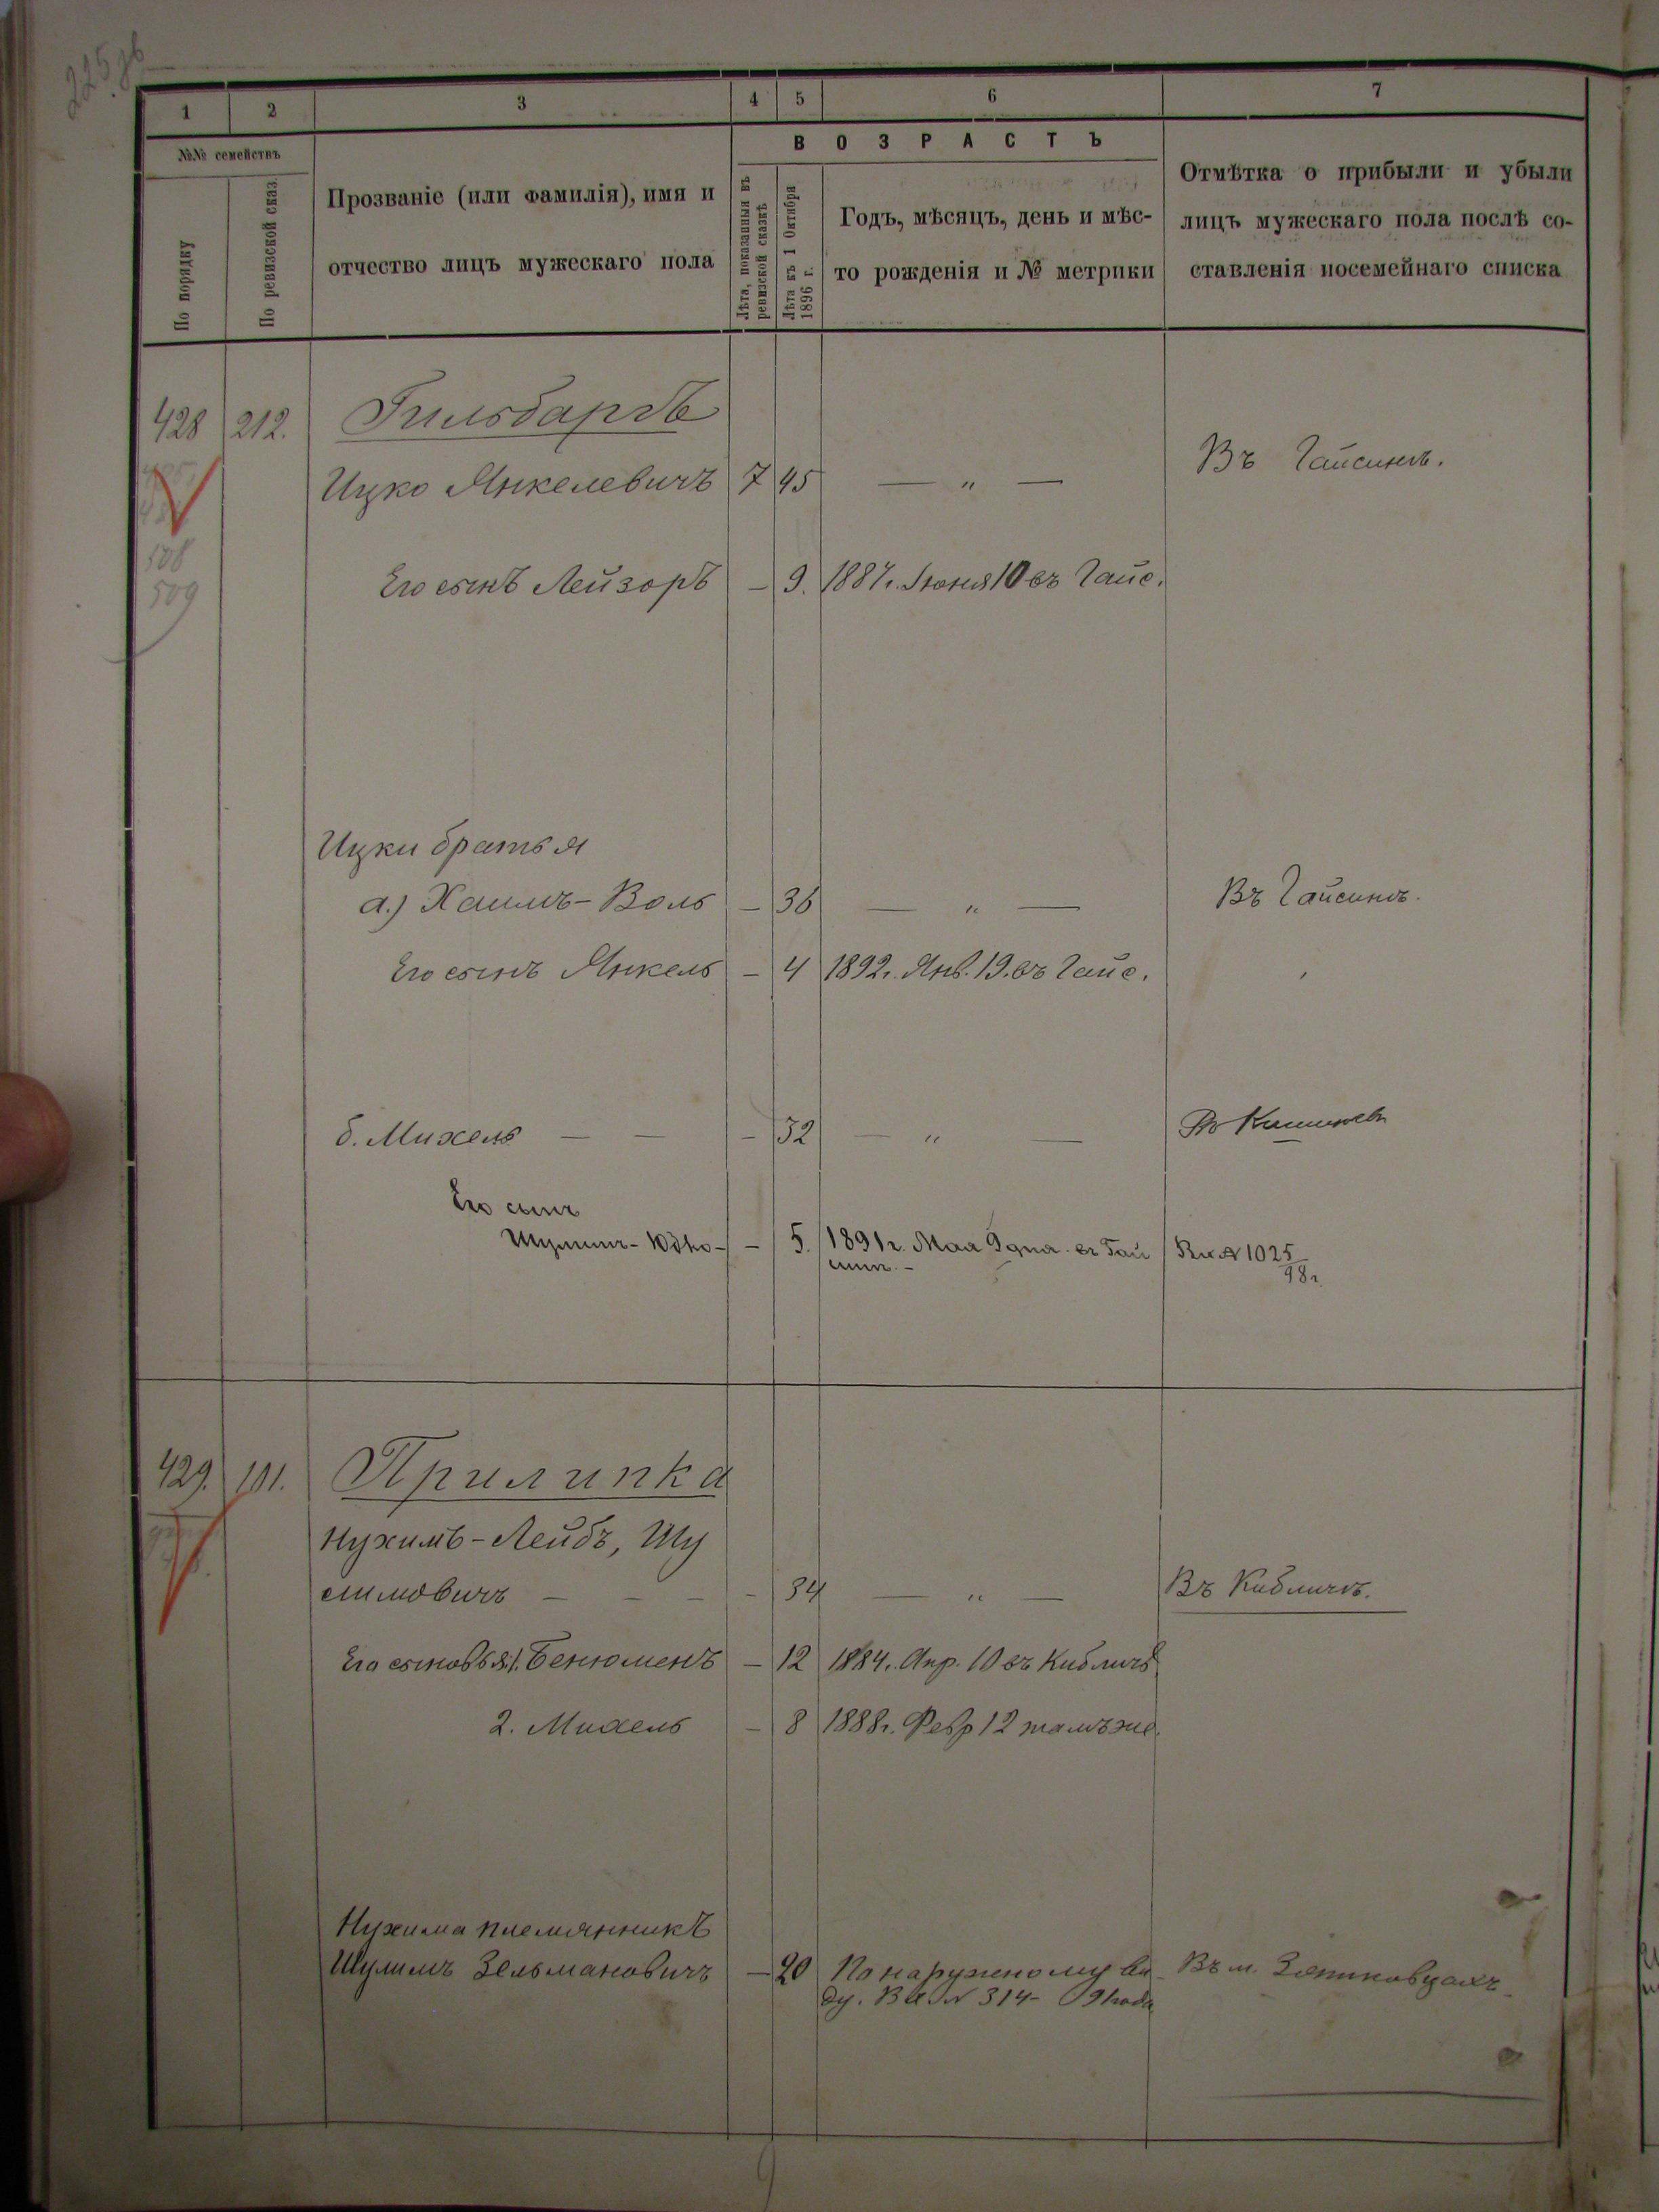 225 зв
1 2 3 4 5 6 7
№№ семействъ
По порядку
По ревизской сказ.
Прозваніе (или фамилія), имя и
отчество лицъ мужескаго пола
ВОЗРАСТЪ
Лѣта, показанныя въ
ревизской сказкѣ
Лѣта къ 1 Октября
1896 г.
Годъ, мѣсяцъ, день и мѣс-
то рожденія и № метрики
Отмѣтка о прибыли и убыли
лицъ мужескаго пола послѣ со-
ставленія посемейнаго списка
428 212. Гильбартъ
Ицко Янкелевичъ 7 45 — „ — Въ Гайсинѣ.
508
509
Его сынъ Лейзоръ — 9. 1887г. Іюня 10 въ Гайс.
Ицки братья
а.) Хаимъ-Воль — 36 — „ — Въ Гайсинѣ.
Его сынъ Янкель — 4 1892г. Янв. 19. въ Гайс.
б. Михель — — — 32 — „ — Въ Кишиневѣ
Его сынъ
Шулимъ-Юдко — — 5. 1891г. Мая 9 дня въ Гай
синѣ. — Вх № 1025
98г.
429. 101. Прилипка
Нухимъ-Лейбъ, Шу
лимовичъ — — — — 34 — „ — Въ Кибличѣ.
Его сыновья: 1. Бенюменъ — 12 1884г. Апр. 10 въ Кибличѣ
2. Михель — 8 1888г. Февр 12 тамъ же.
Нухима племянникъ
Шулимъ Зельмановичъ — 20 По наружному ви-
ду. Вх № 314 — 9 года
Въ м. Зятковцахъ